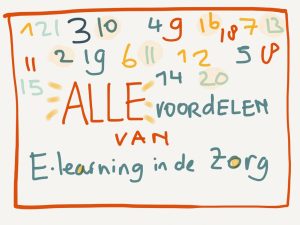 1 21 3 10 4 9 16 18 7 13
11 2 19 6 11 12 5 8
15 14 20
ALLE VOORDELEN
VAN
E-learning in de Zorg